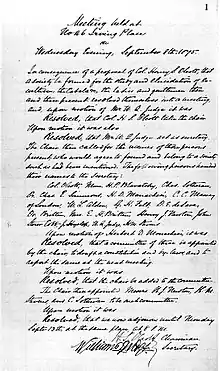 1
Meeting held at
No 46 Irving Place
on
Wednesday Evening, September 8th 1875.
In consequence of a proposal of Col. Henry S. Olcott, that
a Society be formed for the study and elucidation of Oc-
cultism, the Cabala &c, the ladies and gentlemen
then and there present resolved themselves into a meeting
and, upon motion of Mr W. Q. Judge it was
Resolved, that Col. H. S. Olcott take the chair
Upon motion it was also
Resolved, that Mr. W. Q. Judge act as secretary
The Chair then called for the names of the persons
present, who would agree to found and belong to a Society
such as had been mentioned. The following persons handed
their names to the Secretary:
Col. Olcott, Mme. H. P. Blavatsky, Chas. Sotheran
Dr. Chas. E. Simmons, H. D. Monachesi, C. C. Massey
of London, W. L. Alden, G. H. Felt, D. E. de Lara,
Dr. Britten, Mrs. E. H. Britten, Henry J. Newton, John
Storer Cobb, J. Hyslop, W. Q. Judge, H. M. Stevens.
Upon motion of Herbert D. Monachesi, it was
Resolved, that a committee of three be appointed
by the chair, to draft a constitution and by-laws and to
report the same at the next meeting.
Upon motion it was
Resolved, that the chair be added to the committee.
The Chair then appointed Messrs. H. J. Newton, H. M.
Stevens and C. Sotheran to be such committee.
Upon motion it was
Resolved, that we now adjourn until Monday
Septr. 13th, at the same place, at 8 P.M.
Chairman
William Q Judge
Secretary.